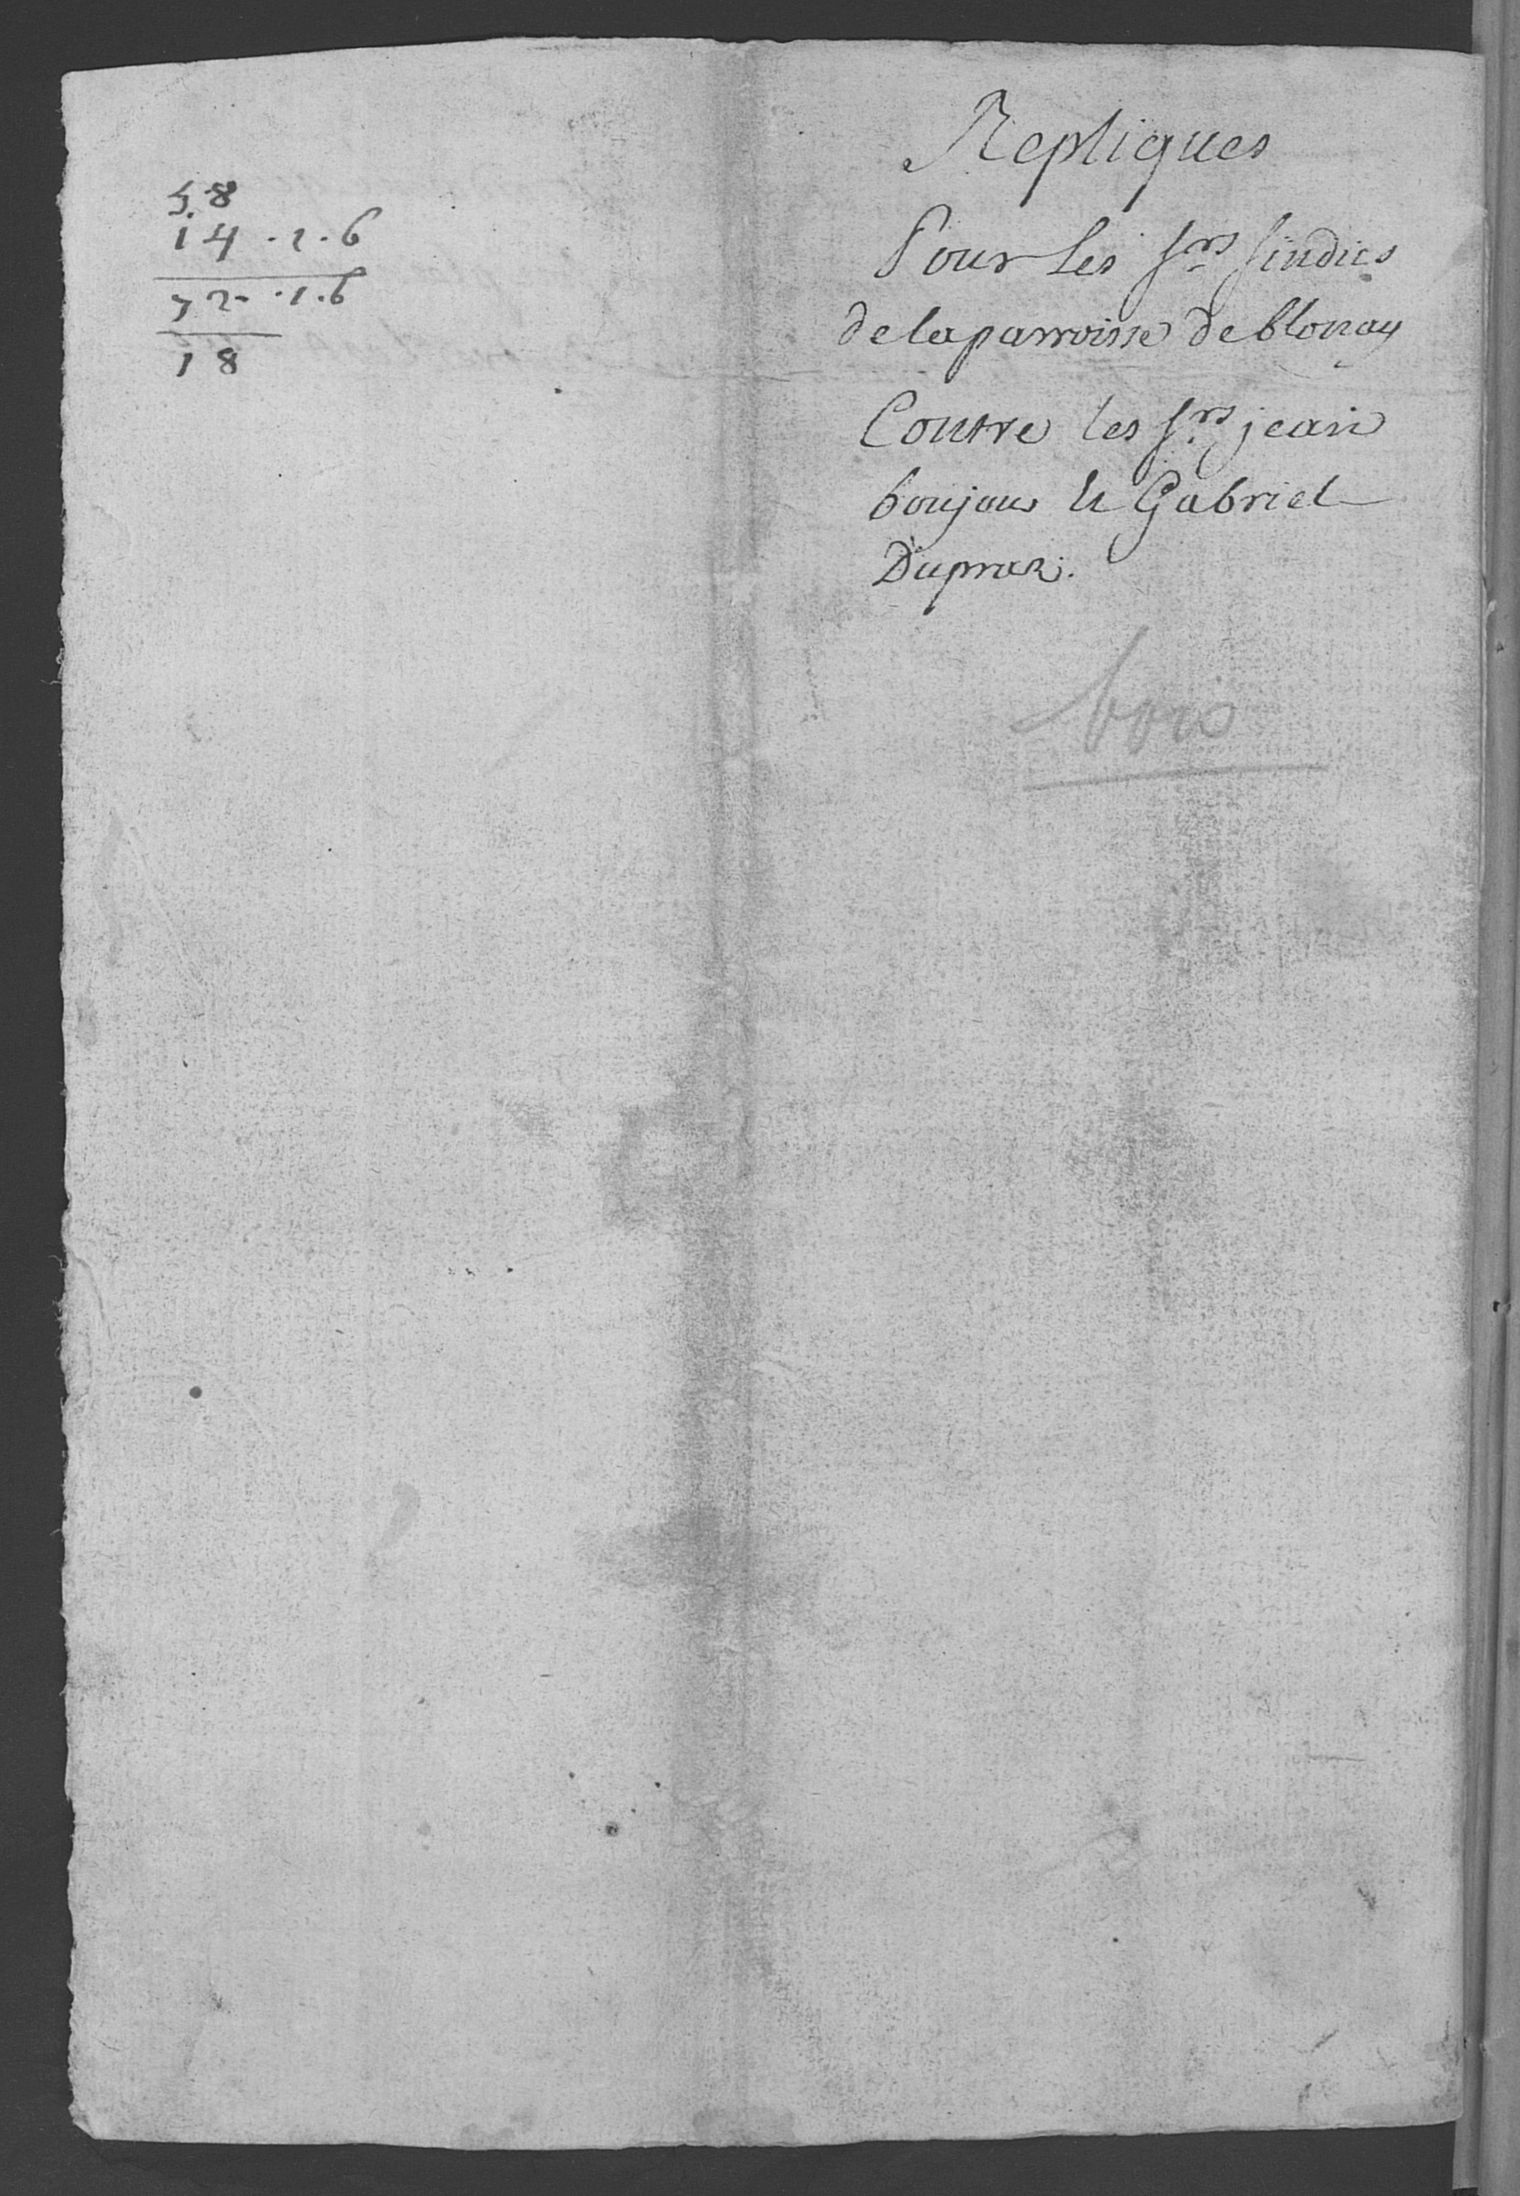 58
14 . 2 . 6
72 . 1 . 6
18
Repliques
Pour les Srs Sindics
de la parroisse de blonay
Contre les Srs jean
bonjour et Gabriel
Dupraz.
bois